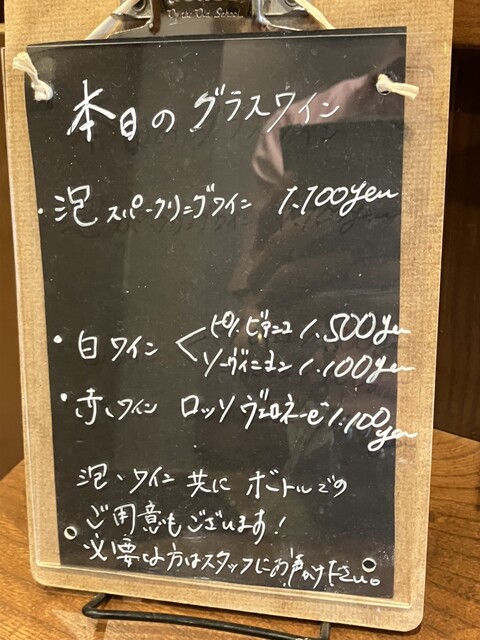 Up the Old School
本日のグラスワイン
・泡 スパークリングワイン 1.100yen
・白ワイン < ピノ.ビアンコ 1.500yen
ソーヴィニヨン 1.100yen
・赤ワイン ロッソ ヴェロネーゼ 1.100
yen
泡・ワイン 共に ボトルでの
ご用意もございます!
必要な方はスタッフにお声かけ下さい。